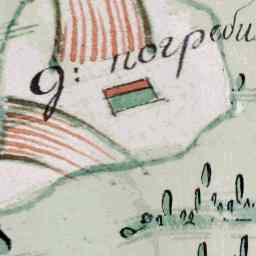 9: погреби